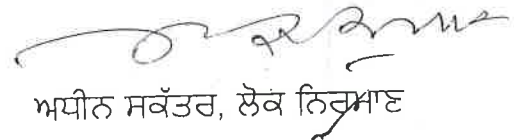 ਅਧੀਨ ਸਕੱਤਰ, ਲੋਕ ਨਿਰਮਾਣ